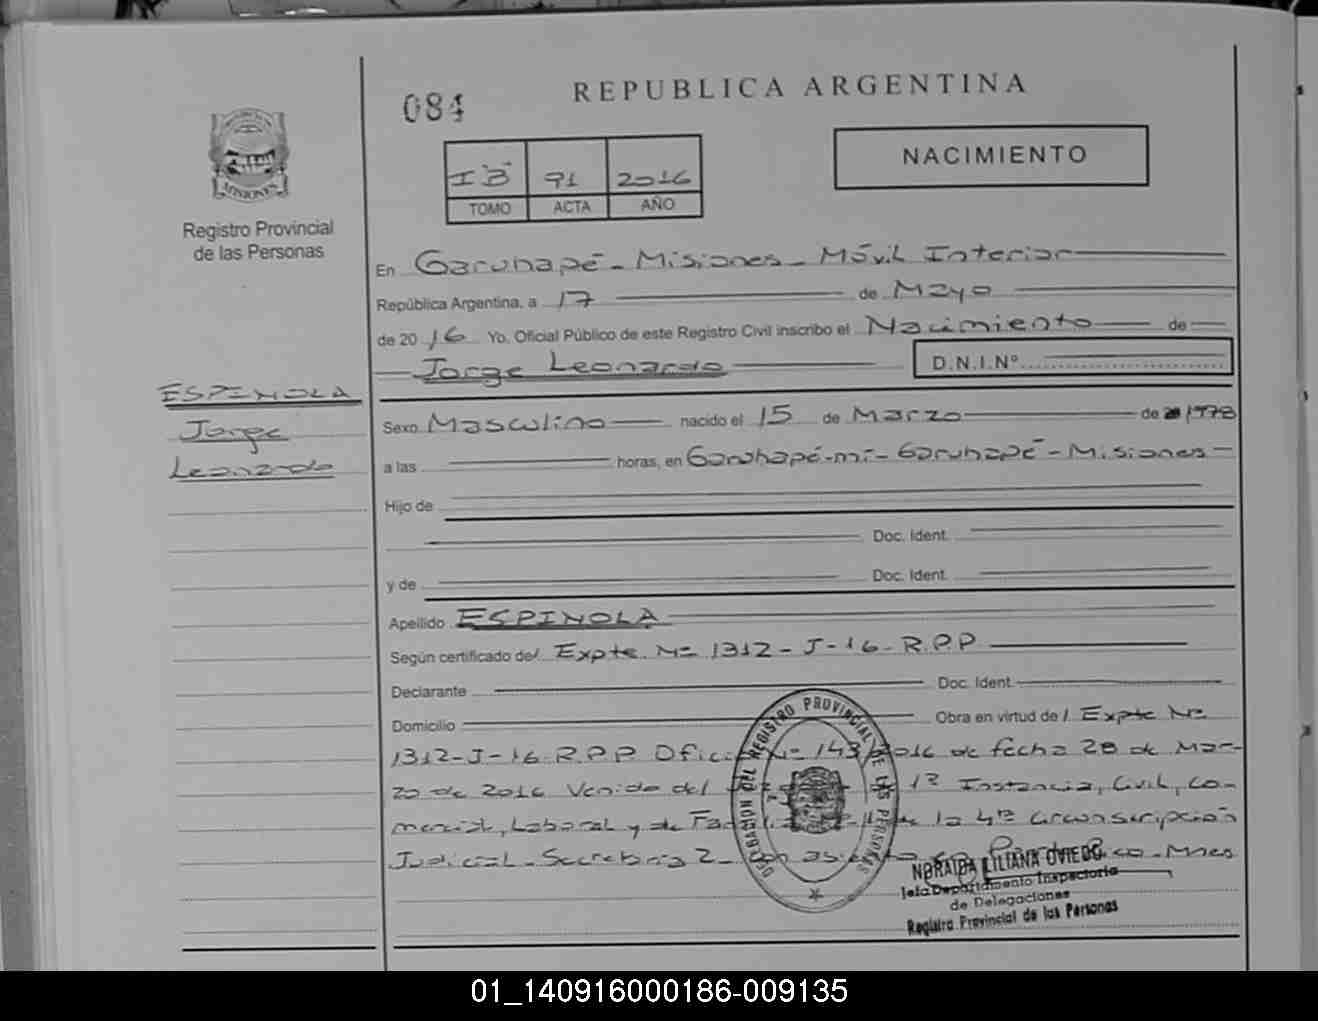 REPUBLICA ARGENTINA
084
NACIMIENTO
I "B" 91 2016
TOMO ACTA AÑO
MISIONES
Registro Provincial
de las Personas
En Garuhapé - Misiones - Móvil Interior
República Argentina, a 17 de Mayo
de 2016 Yo, Oficial Público de este Registro Civil inscribo el Nacimiento de
Jorge Leonardo D.N.I.Nº
ESPINOLA
Jorge
Leonardo
Sexo Masculino nacido el 15 de Marzo de 1978
a las horas, en Garuhapé-mí - Garuhapé - Misiones
Hijo de
Doc. Ident.
y de Doc. Ident.
Apellido ESPINOLA
Según certificado del Expte. Nº 1312 - J - 16 - R.P.P
Declarante Doc. Ident.
Domicilio Obra en virtud del Expte Nº
1312-J-16-R.P.P. Oficio Nº 143/2016 de fecha 28 de Mar-
zo de 2016 Venido del de 1ª Instancia, Civil, Co-
mercial, Laboral y de de la 4ª Circunscripción
Judicial - Secretaría 2 - con asiento en Puerto Rico - Mnes
DELEGACION DEL REGISTRO PROVINCIAL DE LAS PERSONAS
NORAIDA LILIANA OVIEDO
Jefa Departamento Inspectoria
de Delegaciones
Registro Provincial de las Personas
01_140916000186-009135